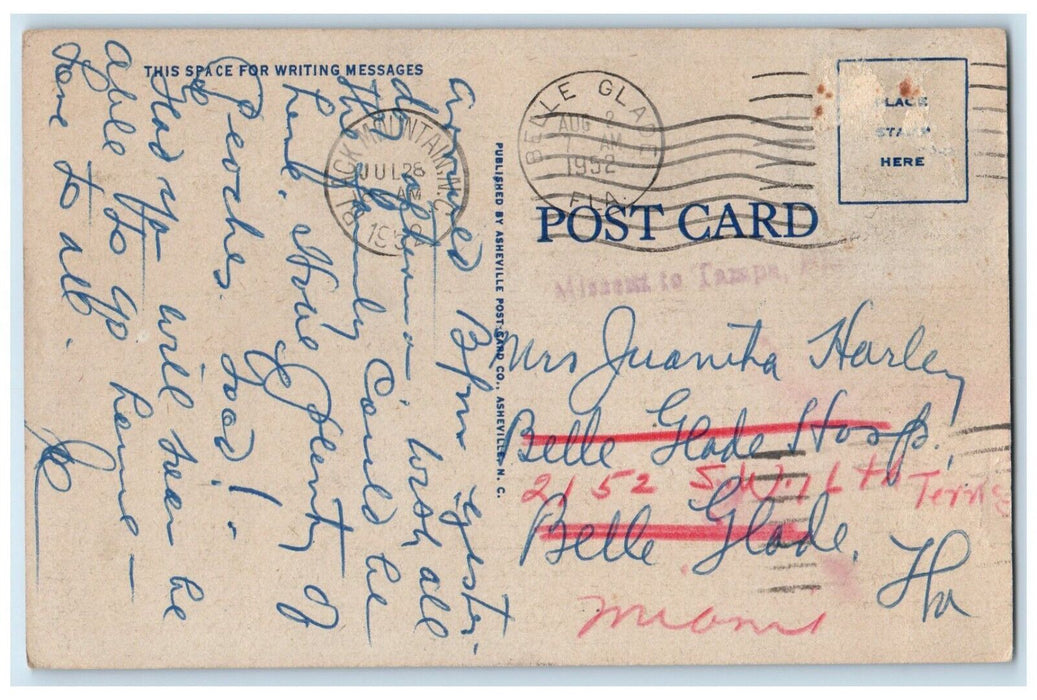 THIS SPACE FOR WRITING MESSAGES
arrived 8pm yester-
day afternoon wish all
the family could be
here. Have plenty of
Peaches. Good!
Glad yo will soon be
able to go home -
Love to all.
BLACK MOUNTAIN, N.C.
JUL 28
AM
PUBLISHED BY ASHEVILLE POST CARD CO., ASHEVILLE, N. C.
BELLE GLADE
AUG 2
AM
1952
FLA.
PLACE
STAMP
HERE
POST CARD
Missent to Tampa,
Mrs Juanita Harley
Belle Glade Hosp.
2152 S.W.
Belle Glade,
Fla
Miami